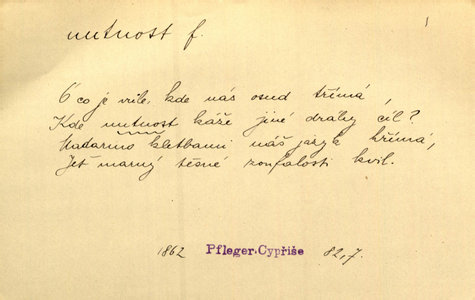 nutnost f.
1
Ó co je vůle, kde nás osud třímá,
Kde nutnost káže jiné dráhy cíl?
Nadarmo kletbami náš jazyk hřímá,
Jeť marný těsné zoufalosti kvil.
1862 Pfleger-Cypřiše 82,7.